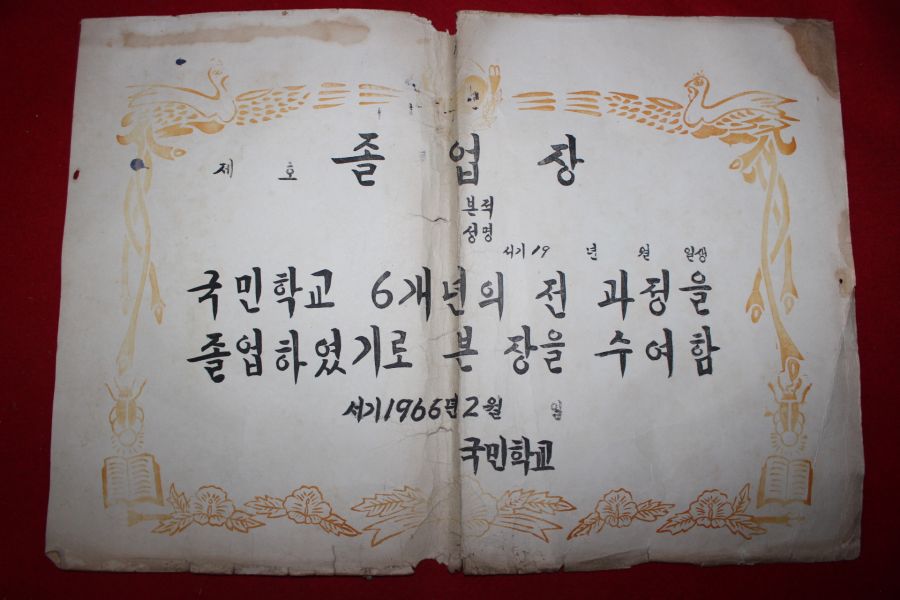 제 호 졸 업 장
본적
성명
서기 19 년 월 일생
국민학교 6개년의 전 과정을
졸업하였기로 본 장을 수여함
서기 1966년 2월 일
국민학교